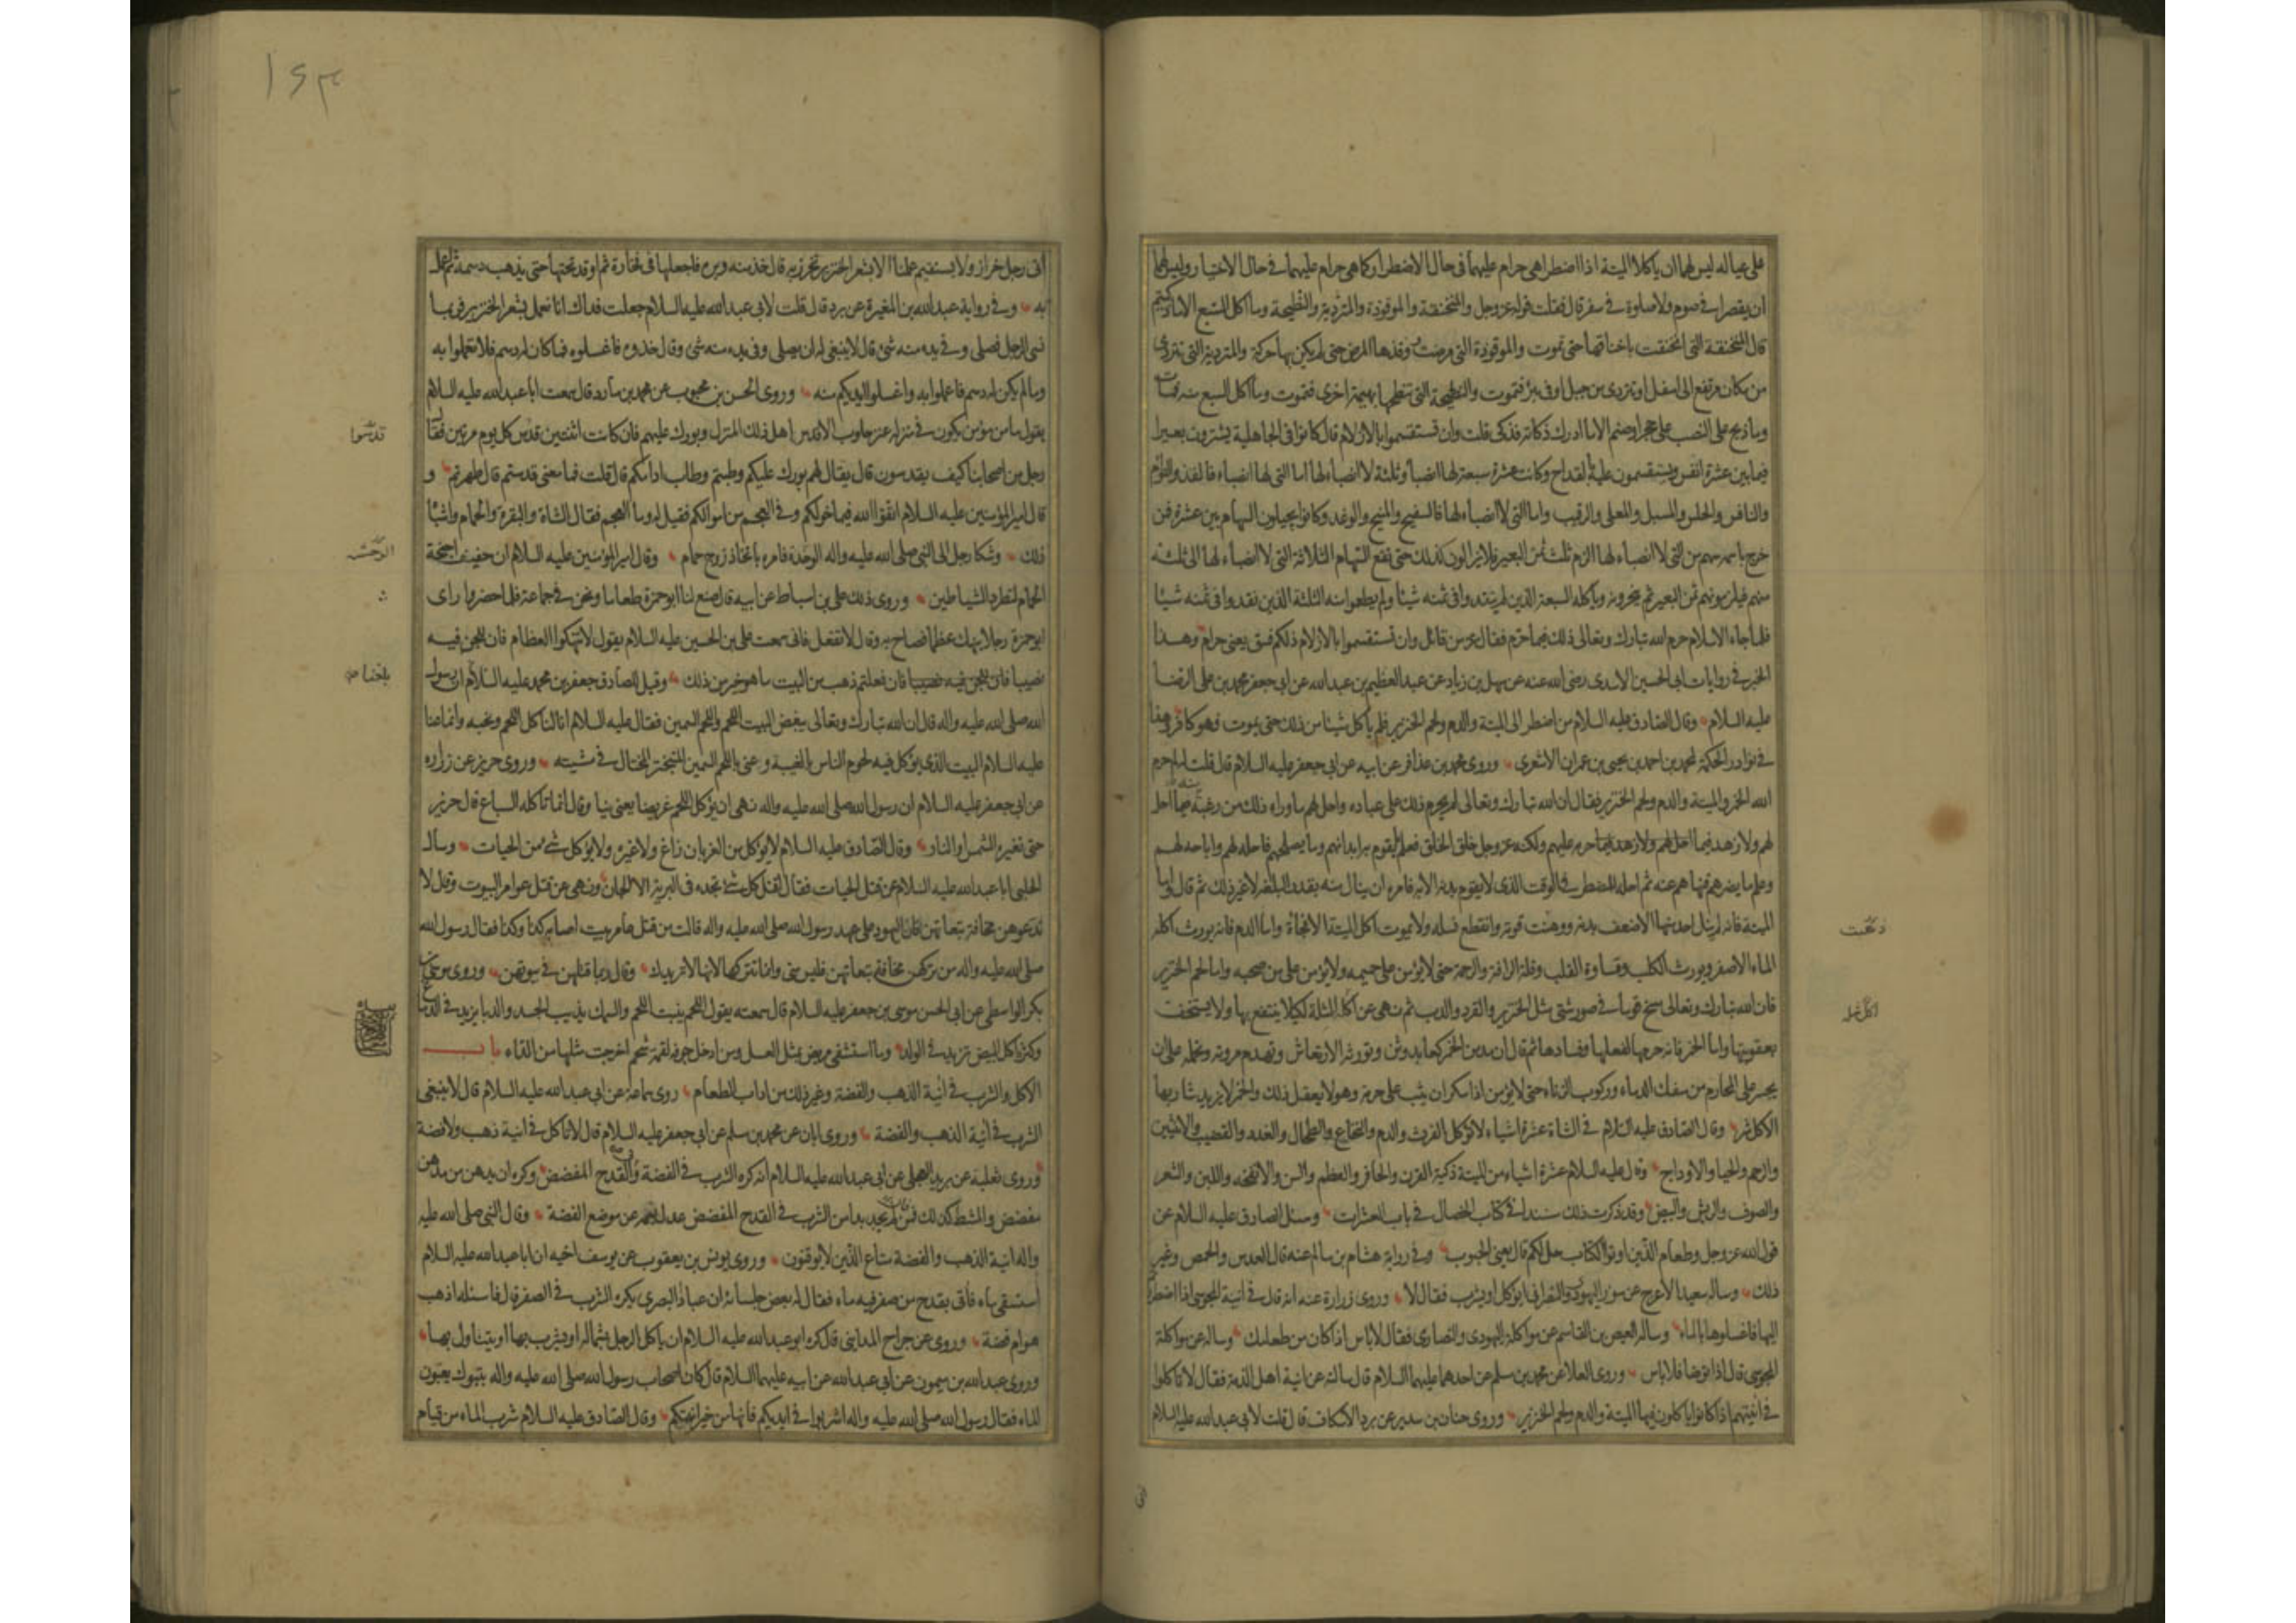 على عياله ليس لهما ان ياكلا الميتة اذا اضطرا هي حرام عليهما في حال الاضطرار كما هي حرام عليهما في حال الاختيار وليس لهما
ان يقصرا في صوم ولا صلوة في سفر قال فقلت قوله عز وجل والمنخنقة والموقوذة والمتردية والنطيحة وما اكل السبع الا ما ذكيتم
قال المنخنقة التي انخنقت باخناقها حتى تموت والموقوذة التي مرضت وقذها المرض حتى لم يكن بها حركة والمتردية التي تتردى
من مكان مرتفع الى اسفل او تتردى من جبل او في بئر فتموت والنطيحة التي تنطحها بهيمة اخرى فتموت وما اكل السبع منه فمات
وما ذبح على النصب على حجر او صنم الا ما ادرك ذكاته فذكى قلت وان تستقسموا بالازلام قال كانوا في الجاهلية يشترون بعيرا
فيما بين عشرة انفس ويستقسمون عليه بالقداح وكانت عشرة سبعة لها انصباء وثلثة لا انصباء لها اما التي لها انصباء فالفذ والتوأم
والنافس والحلس والمسبل والمعلى والرقيب واما التي لا انصباء لها فالسفيح والمنيح والوغد وكانوا يجيلون السهام بين عشرة فمن
خرج باسمه سهم من التي لا انصباء لها الزم ثلث ثمن البعير فلا يزالون كذلك حتى تقع السهام الثلاثة التي لا انصباء لها الى ثلثة
منهم فيلزمونهم ثمن البعير ثم ينحرونه وياكله السبعة الذين لم ينقدوا في ثمنه شيئا ولم يطعموا منه الثلثة الذين نقدوا في ثمنه شيئا
فلما جاء الاسلام حرم الله تبارك وتعالى ذلك فيما حرم فقال عز من قائل وان تستقسموا بالازلام ذلكم فسق يعني حرام وهذا
الخبر في روايات ابي الحسين الاسدي رضي الله عنه عن سهل بن زياد عن عبد العظيم بن عبد الله عن ابي جعفر محمد بن علي الرضا
عليه السلام وقال الصادق عليه السلام من اضطر الى الميتة والدم ولحم الخنزير فلم ياكل شيئا من ذلك حتى يموت فهو كافر وهذا
في نوادر الحكمة لمحمد بن احمد بن يحيى بن عمران الاشعري وروى محمد بن عذافر عن ابيه عن ابي جعفر عليه السلام قال قلت له لم حرم
الله الخمر والميتة والدم ولحم الخنزير فقال ان الله تبارك وتعالى لم يحرم ذلك على عباده واحل لهم ما وراء ذلك من رغبة منه فيما احل
لهم ولا زهد فيما احل لهم ولا زهد فيما حرمه عليهم ولكنه عز وجل خلق الخلق فعلم ما يقوم به ابدانهم وما يصلحهم فاحله لهم واباحه لهم
وعلم ما يضرهم فنهاهم عنه ثم احله للمضطر في الوقت الذي لا يقوم بدنه الا به فامره ان ينال منه بقدر البلغة لا غير ذلك ثم قال واما
الميتة فانه لم ينل احد منها الا ضعف بدنه ووهنت قوته وانقطع نسله ولا يموت اكل الميتة الا فجأة واما الدم فانه يورث اكله
الماء الاصفر ويورث الكلب وقساوة القلب وقلة الرافة والرحمة حتى لا يؤمن على حميمه ولا يؤمن على من صحبه واما لحم الخنزير
فان الله تبارك وتعالى مسخ قوما في صور شتى مثل الخنزير والقرد والدب ثم نهى عن اكل المثلة لكيلا ينتفع بها ولا يستخف
بعقوبتها واما الخمر فانه حرمها لفعلها وفسادها ثم قال ان مدمن الخمر كعابد وثن وتورثه الارتعاش وتهدم مروته وتحمله على ان
يجسر على المحارم من سفك الدماء وركوب الزناء حتى لا يؤمن اذا سكر ان يثب على حرمه وهو لا يعقل ذلك والخمر لا يزيد شاربها
الا كل شر وقال الصادق عليه السلام في الشاة عشرة اشياء لا تؤكل الفرث والدم والنخاع والطحال والغدد والقضيب والانثيين
والرحم والحيا والاوداج وقال عليه السلام عشرة اشياء من الميتة ذكية القرن والحافر والعظم والسن والانفحة واللبن والشعر
والصوف والريش والبيض وقد ذكرت ذلك مسندا في كتاب الخصال في باب العشرات وسئل الصادق عليه السلام عن
قول الله عز وجل وطعام الذين اوتوا الكتاب حل لكم قال يعني الحبوب وفي رواية هشام بن سالم عنه قال العدس والحمص وغير
ذلك وساله سعيد الاعرج عن سؤر اليهودي والنصراني ايؤكل او يشرب فقال لا وروى زرارة عنه انه قال في انية المجوسي اذا اضطررتم
اليها فاغسلوها بالماء وساله العيص بن القاسم عن مواكلة اليهودي والنصارى فقال لا باس اذا كان من طعامك وساله عن مواكلة
المجوسي قال اذا توضا فلا باس وروى العلا عن محمد بن مسلم عن احدهما عليهما السلام قال سالته عن انية اهل الذمة فقال لا تاكلوا
في انيتهم اذا كانوا ياكلون فيها الميتة والدم ولحم الخنزير وروى حنان بن سدير عن برد الاسكاف قال قلت لابي عبد الله عليه السلام
اني
اني رجل خراز ولا يستقيم عملنا الا بشعر الخنزير نخرز به قال خذ منه وبره فاجعلها في فخارة ثم اوقد تحتها حتى يذهب دسمه ثم اعمل
به وفي رواية عبد الله بن المغيرة عن برد قال قلت لابي عبد الله عليه السلام جعلت فداك انا نعمل بشعر الخنزير فربما
نسي الرجل فصلى وفي يده منه شئ قال لا ينبغي له ان يصلي وفي يده منه شئ وقال خذوه فاغسلوه فما كان له دسم فلا تعملوا به
وما لم يكن له دسم فاعملوا به واغسلوا ايديكم منه وروى الحسن بن محبوب عن محمد بن مارد قال سمعت ابا عبد الله عليه السلام
يقول ما من مؤمن يكون في منزله عنز حلوب الا قدس اهل ذلك المنزل وبورك عليهم فان كانت اثنتين قدس كل يوم مرتين فقال
رجل من اصحابنا كيف يقدسون قال يقال لهم بورك عليكم وطبتم وطاب ادامكم قال قلت فما معنى قدستم قال طهرتم و
قال امير المؤمنين عليه السلام اتقوا الله فيما خولكم وفي العجم من اموالكم فقيل له وما العجم فقال الشاة والبقرة والحمام واشباه
ذلك وشكا رجل الى النبي صلى الله عليه واله الوحدة فامره باتخاذ زوج حمام وقال امير المؤمنين عليه السلام ان حفيف اجنحة
الحمام لتطرد الشياطين وروى ذلك علي بن اسباط عن ابيه قال صنع لنا ابو حمزة طعاما ونحن في جماعة فلما حضروا راى
ابو حمزة رجلا ينهك عظما فصاح به وقال لا تفعل فاني سمعت علي بن الحسين عليه السلام يقول لا تنهكوا العظام فان للجن فيه
نصيبا فان للجن فيه نصيبا فان فعلتم ذهب من البيت ما هو خير من ذلك وقيل للصادق جعفر بن محمد عليه السلام ان رسول
الله صلى الله عليه واله قال ان الله تبارك وتعالى يبغض البيت اللحم واللحم السمين فقال عليه السلام انا لناكل اللحم ونحبه وانما عنا
عليه السلام البيت الذي يؤكل فيه لحوم الناس بالغيبة وعنى باللحم السمين المتبختر المختال في مشيته وروى حريز عن زرارة
عن ابي جعفر عليه السلام ان رسول الله صلى الله عليه واله نهى ان يؤكل اللحم غريضا يعني نيا وقال انما تاكله السباع قال حريز
حتى تغيره الشمس او النار وقال الصادق عليه السلام لا يؤكل من الغربان زاغ ولا غيره ولا يؤكل شئ من الحيات وسال
الحلبي ابا عبد الله عليه السلام عن قتل الحيات فقال اقتل كل شئ تجده في البرية الا الجان ونهى عن قتل عوامر البيوت وقال لا
تدعوهن مخافة تبعاتهن فان اليهود على عهد رسول الله صلى الله عليه واله قالت من قتل عامر بيت اصابه كذا وكذا فقال رسول الله
صلى الله عليه واله من تركهن مخافة تبعاتهن فليس مني وانما تتركها لانها لا تريدك وقال ربما قتلهن في بيوتهن وروى موسى بن
بكر الواسطي عن ابي الحسن موسى بن جعفر عليه السلام قال سمعته يقول اللحم ينبت اللحم والسمك يذيب الجسد والدبا يزيد في الدماغ
وكثرة اكل البيض تزيد في الولد وما استشفى مريض بمثل العسل ومن ادخل جوفه لقمة شحم اخرجت مثلها من الداء باب
الاكل والشرب في انية الذهب والفضة وغير ذلك من اداب الطعام روى سماعة عن ابي عبد الله عليه السلام قال لا ينبغي
الشرب في انية الذهب والفضة وروى ابان عن محمد بن مسلم عن ابي جعفر عليه السلام قال لا تاكل في انية ذهب ولا فضة
وروى ثعلبة عن بريد العجلي عن ابي عبد الله عليه السلام انه كره الشرب في الفضة وفي القدح المفضض وكره ان يدهن من مدهن
مفضض والمشط كذلك فمن لم يجد بدا من الشرب في القدح المفضض عدل بفمه عن موضع الفضة وقال النبي صلى الله عليه
واله انية الذهب والفضة متاع الذين لا يوقنون وروى يونس بن يعقوب عن يوسف اخيه ان ابا عبد الله عليه السلام
استسقى ماء فاتي بقدح من صفر فيه ماء فقال له بعض جلسائه ان عباد البصري يكره الشرب في الصفر قال فاسئله اذهب
هو ام فضة وروي عن جراح المدايني قال كره ابو عبد الله عليه السلام ان ياكل الرجل بشماله او يشرب بها او يتناول بها
وروى عبد الله بن ميمون عن ابي عبد الله عن ابيه عليهما السلام قال كان اصحاب رسول الله صلى الله عليه واله بتبوك يعبون
الماء فقال رسول الله صلى الله عليه واله اشربوا في ايديكم فانها من خير انيتكم وقال الصادق عليه السلام شرب الماء من قيام